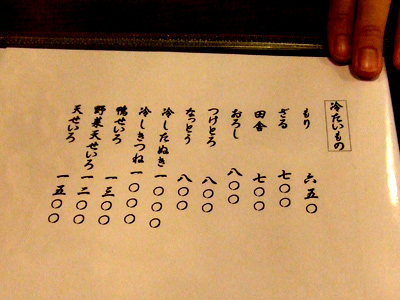 冷たいもの
もり 六五〇
ざる 七〇〇
田舎 七〇〇
おろし 八〇〇
つけとろ 八〇〇
なっとう 八〇〇
冷したぬき 一〇〇〇
冷しきつね 一〇〇〇
鴨せいろ 一三〇〇
野菜天せいろ 一二〇〇
天せいろ 一五〇〇